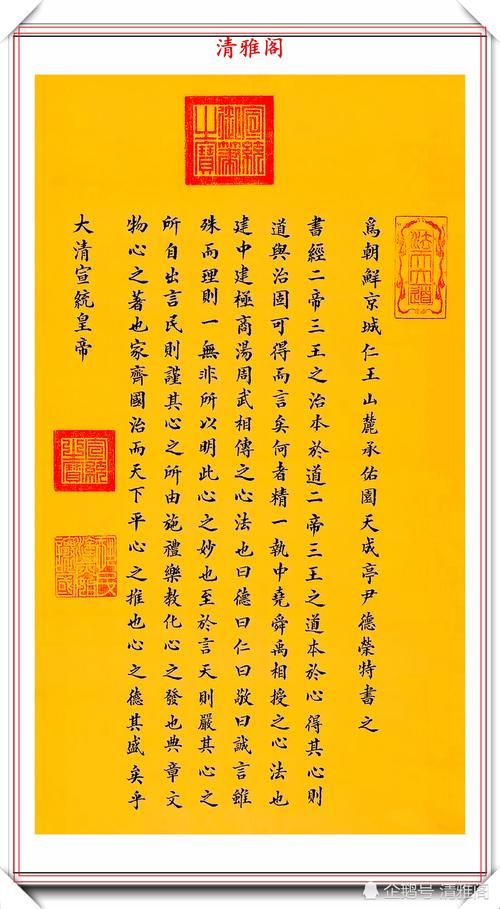 清雅阁
宣統御筆之寶
爲朝鮮京城仁王山麓承佑園天成亭尹德榮特書之
書經二帝三王之治本於道二帝三王之道本於心得其心則
道與治固可得而言矣何者精一執中堯舜禹相授之心法也
建中建極商湯周武相傳之心法也曰德曰仁曰敬曰誠言雖
殊而理則一無非所以明此心之妙也至於言天則嚴其心之
所自出言民則謹其心之所由施禮樂教化心之發也典章文
物心之著也家齊國治而天下平心之推也心之德其盛矣乎
大清宣統皇帝
企鹅号 清雅阁